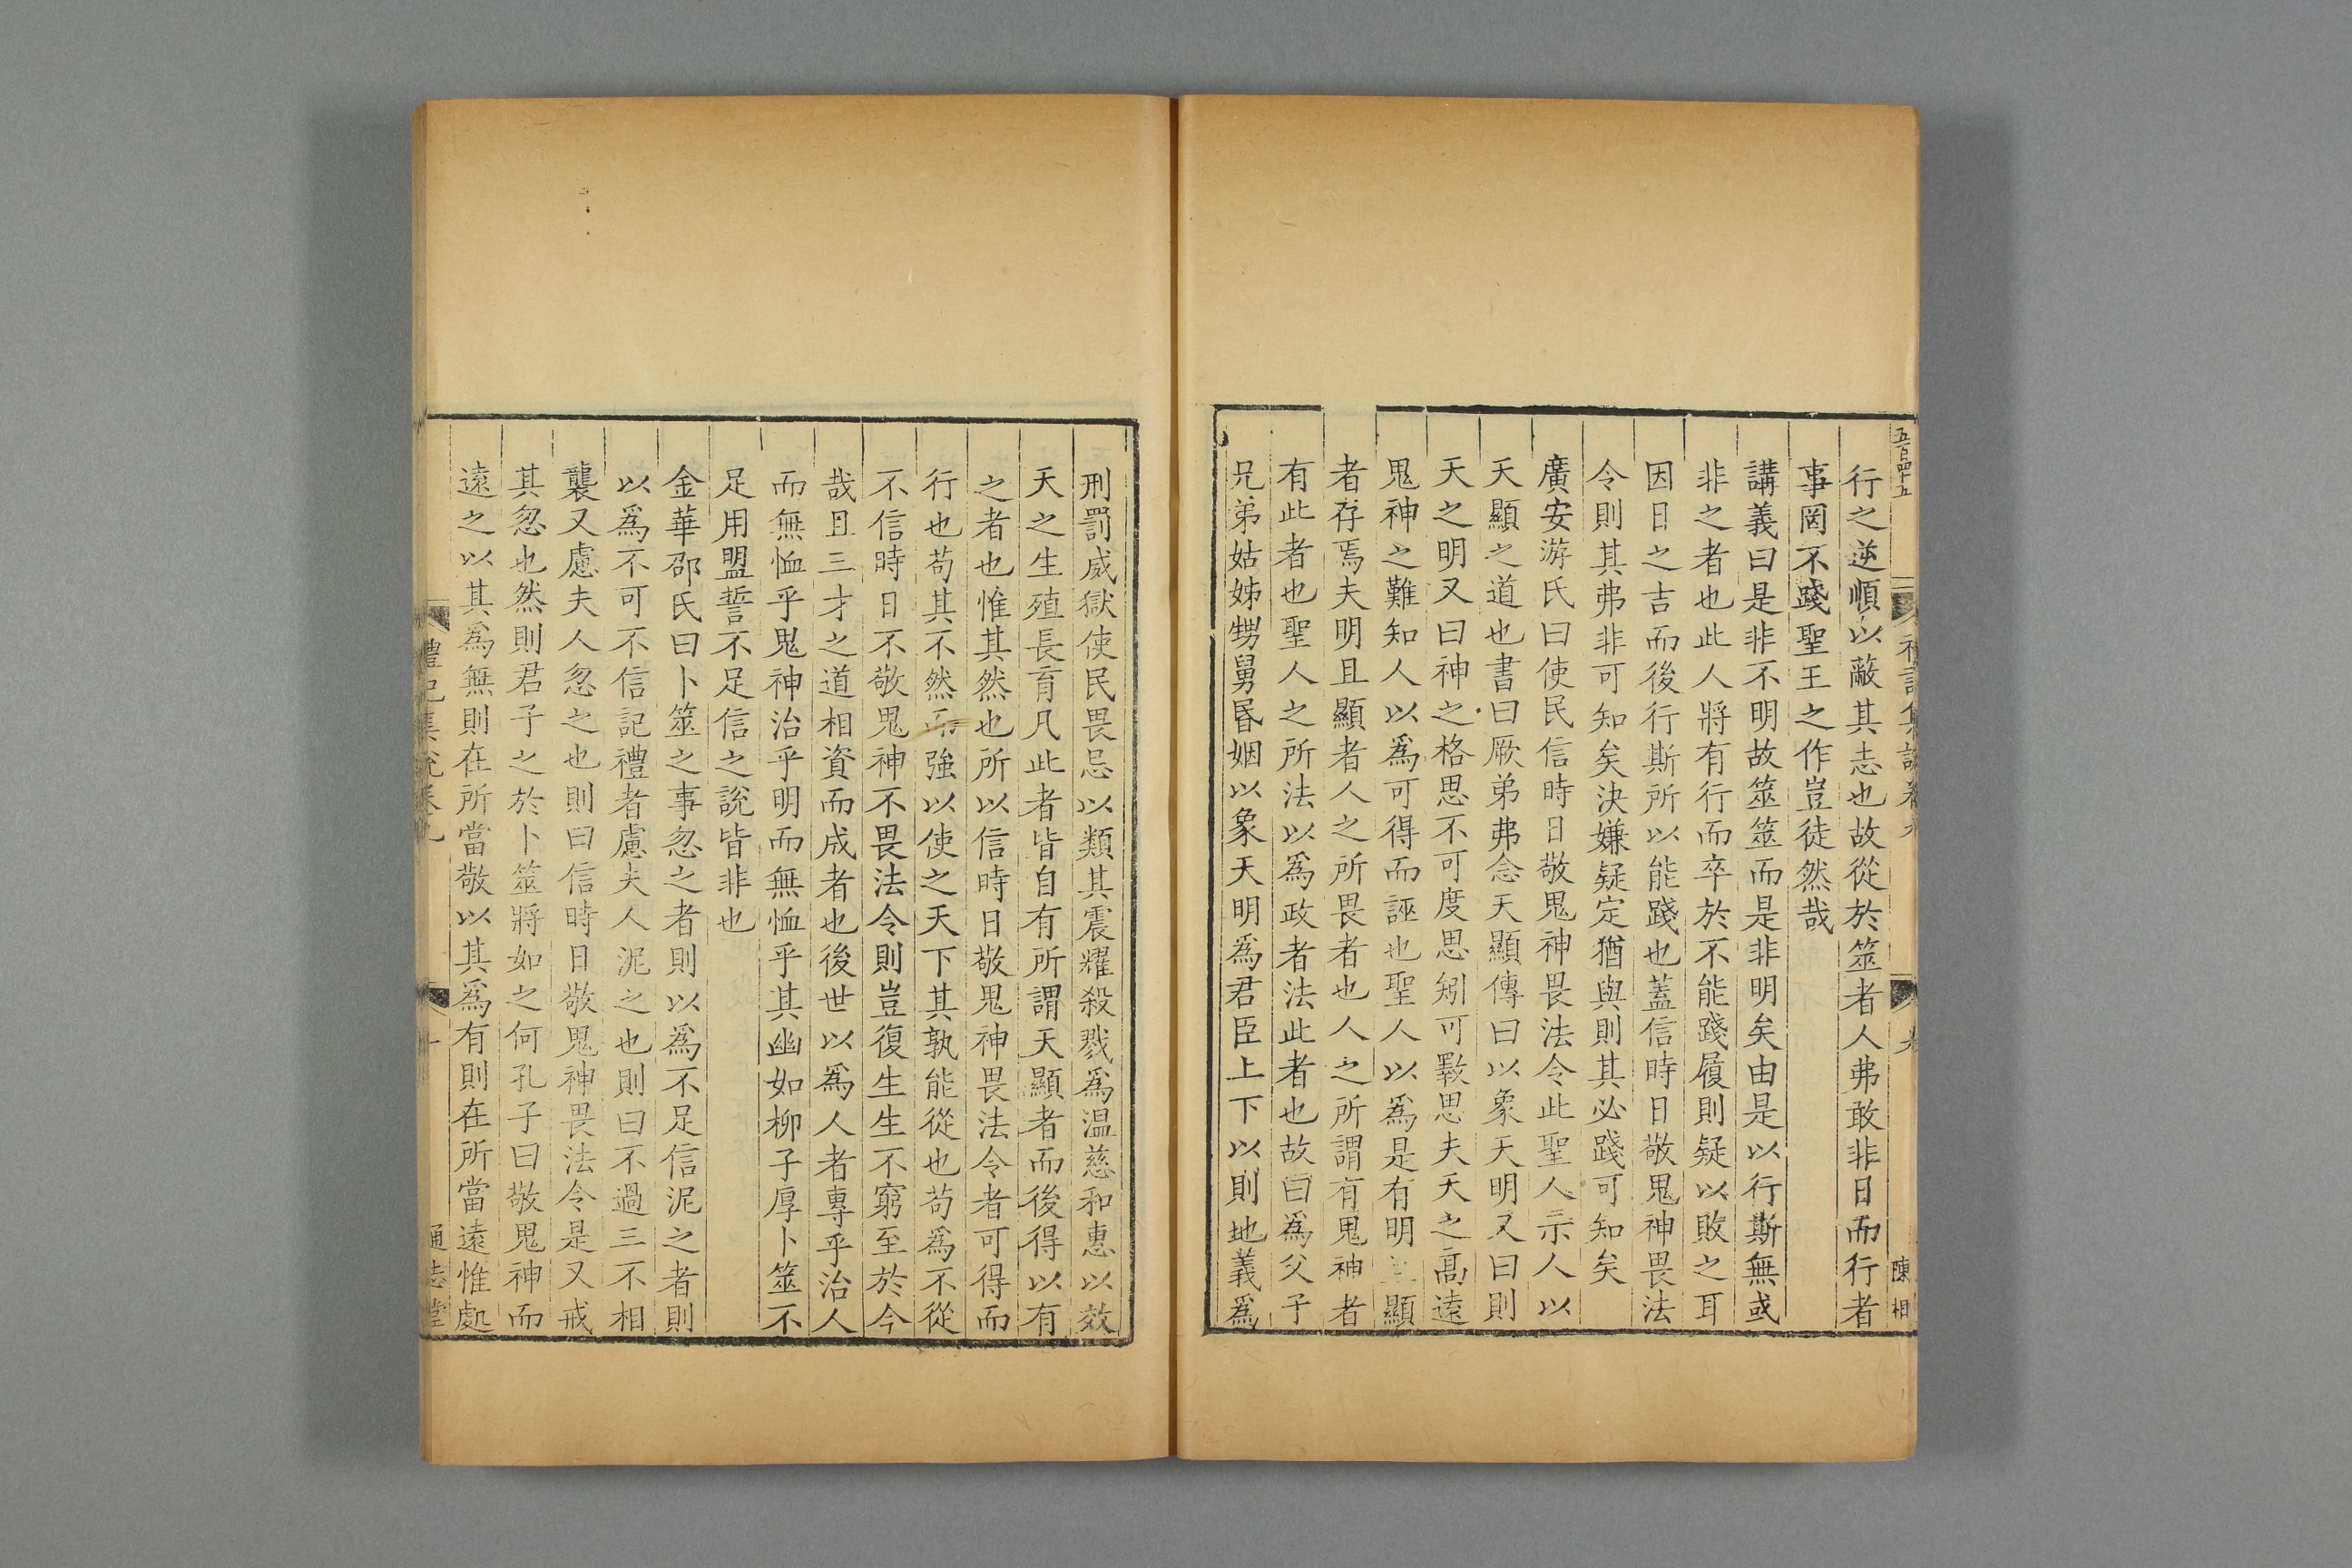 五百四十五
禮記集說卷九
九
陳相
行之逆順以蔽其志也故從於筮者人弗敢非日而行者
事罔不踐聖王之作豈徒然哉
講義曰是非不明故筮筮而是非明矣由是以行斯無或
非之者也此人將有行而卒於不能踐履則疑以敗之耳
因日之吉而後行斯所以能踐也蓋信時日敬鬼神畏法
令則其弗非可知矣決嫌疑定猶與則其必踐可知矣
廣安游氏曰使民信時日敬鬼神畏法令此聖人示人以
天顯之道也書曰厥弟弗念天顯傳曰以象天明又曰則
天之明又曰神之格思不可度思矧可斁思夫天之高遠
鬼神之難知人以為可得而誣也聖人以為是有明顯
者存焉夫明且顯者人之所畏者也人之所謂有鬼神者
有此者也聖人之所法以為政者法此者也故曰為父子
兄弟姑姊甥舅昬姻以象天明為君臣上下以則地義為
刑罰威獄使民畏忌以類其震耀殺戮為温慈和惠以效
天之生殖長育凡此者皆自有所謂天顯者而後得以有
之者也惟其然也所以信時日敬鬼神畏法令者可得而
行也苟其不然而強以使之天下其孰能從也苟為不從
不信時日不敬鬼神不畏法令則豈復生生不窮至於今
哉且三才之道相資而成者也後世以為人者專乎治人
而無恤乎鬼神治乎明而無恤乎其幽如柳子厚卜筮不
足用盟誓不足信之說皆非也
金華邵氏曰卜筮之事忽之者則以為不足信泥之者則
以為不可不信記禮者慮夫人泥之也則曰不過三不相
襲又慮夫人忽之也則曰信時日敬鬼神畏法令是又戒
其忽也然則君子之於卜筮將如之何孔子曰敬鬼神而
遠之以其為無則在所當敬以其為有則在所當遠惟處
禮記集說卷九
十
通志堂